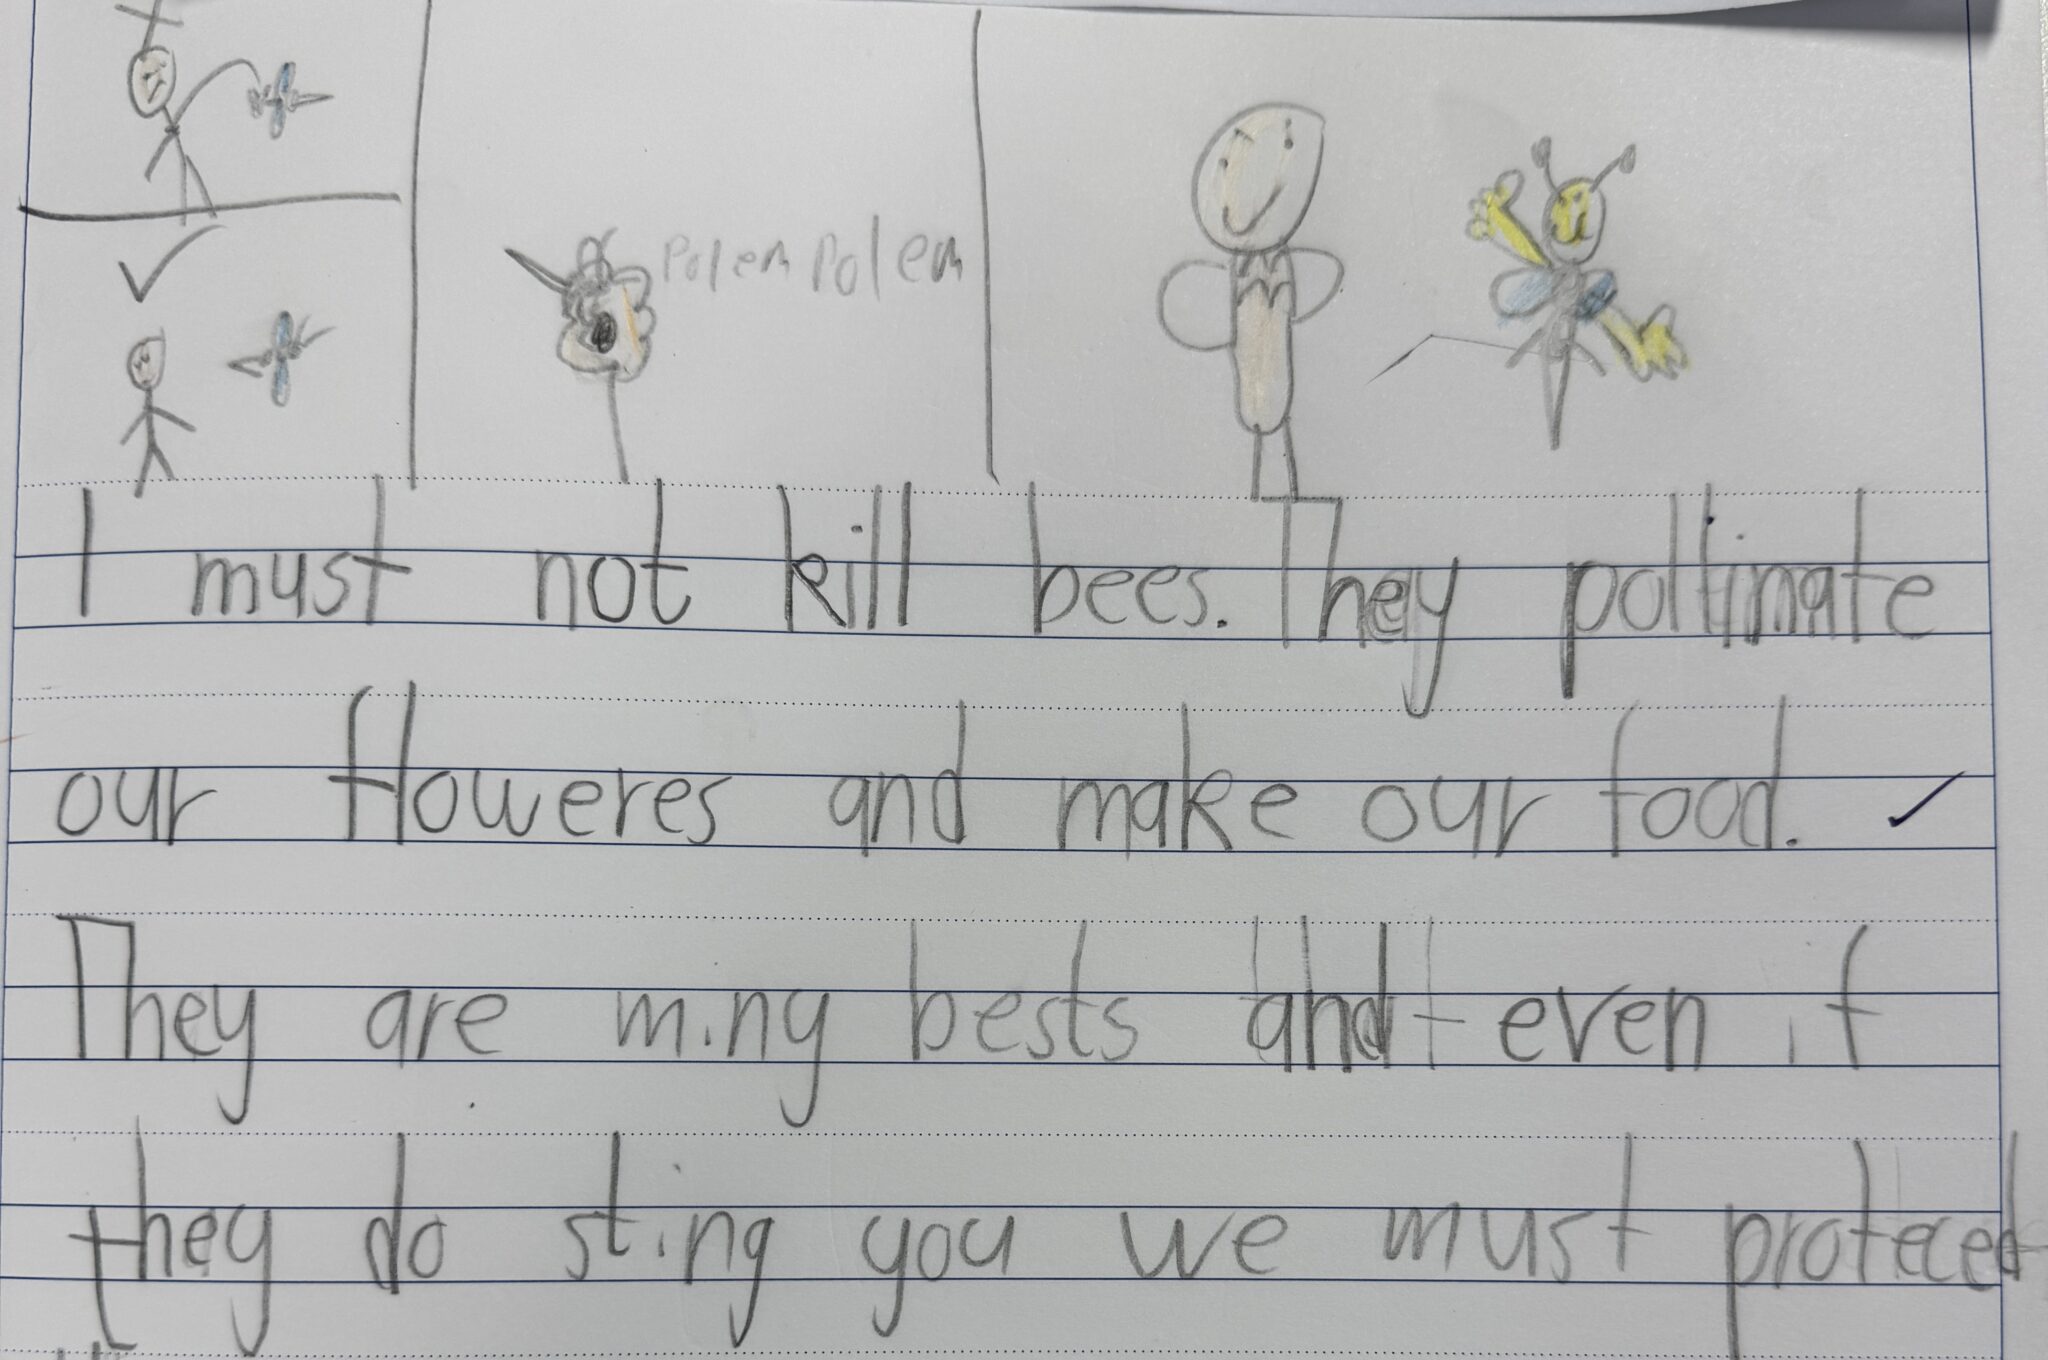 Polem Polem
I must not kill bees. They pollinate
our floweres and make our food.
They are miny bests and even if
they do sting you we must protecet